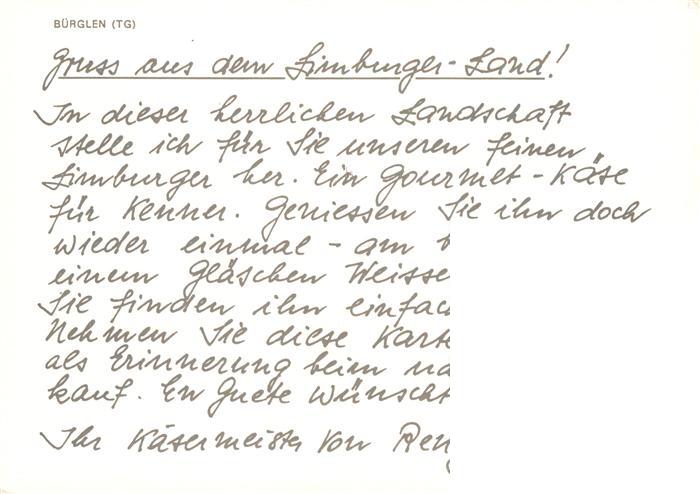 BÜRGLEN (TG)
Gruss aus dem Limburger-Land!
In dieser herrlichen Landschaft
stelle ich für Sie unseren feinen
Limburger her. Ein Gourmet-Käse
für Kenner. Geniessen Sie ihn doch
wieder einmal - am
einem Gläschen Weisse
Sie finden ihn einfac
Nehmen Sie diese Karte
als Erinnerung beim na
kauf. En Guete wünscht
Ihr Käsermeister von Ren